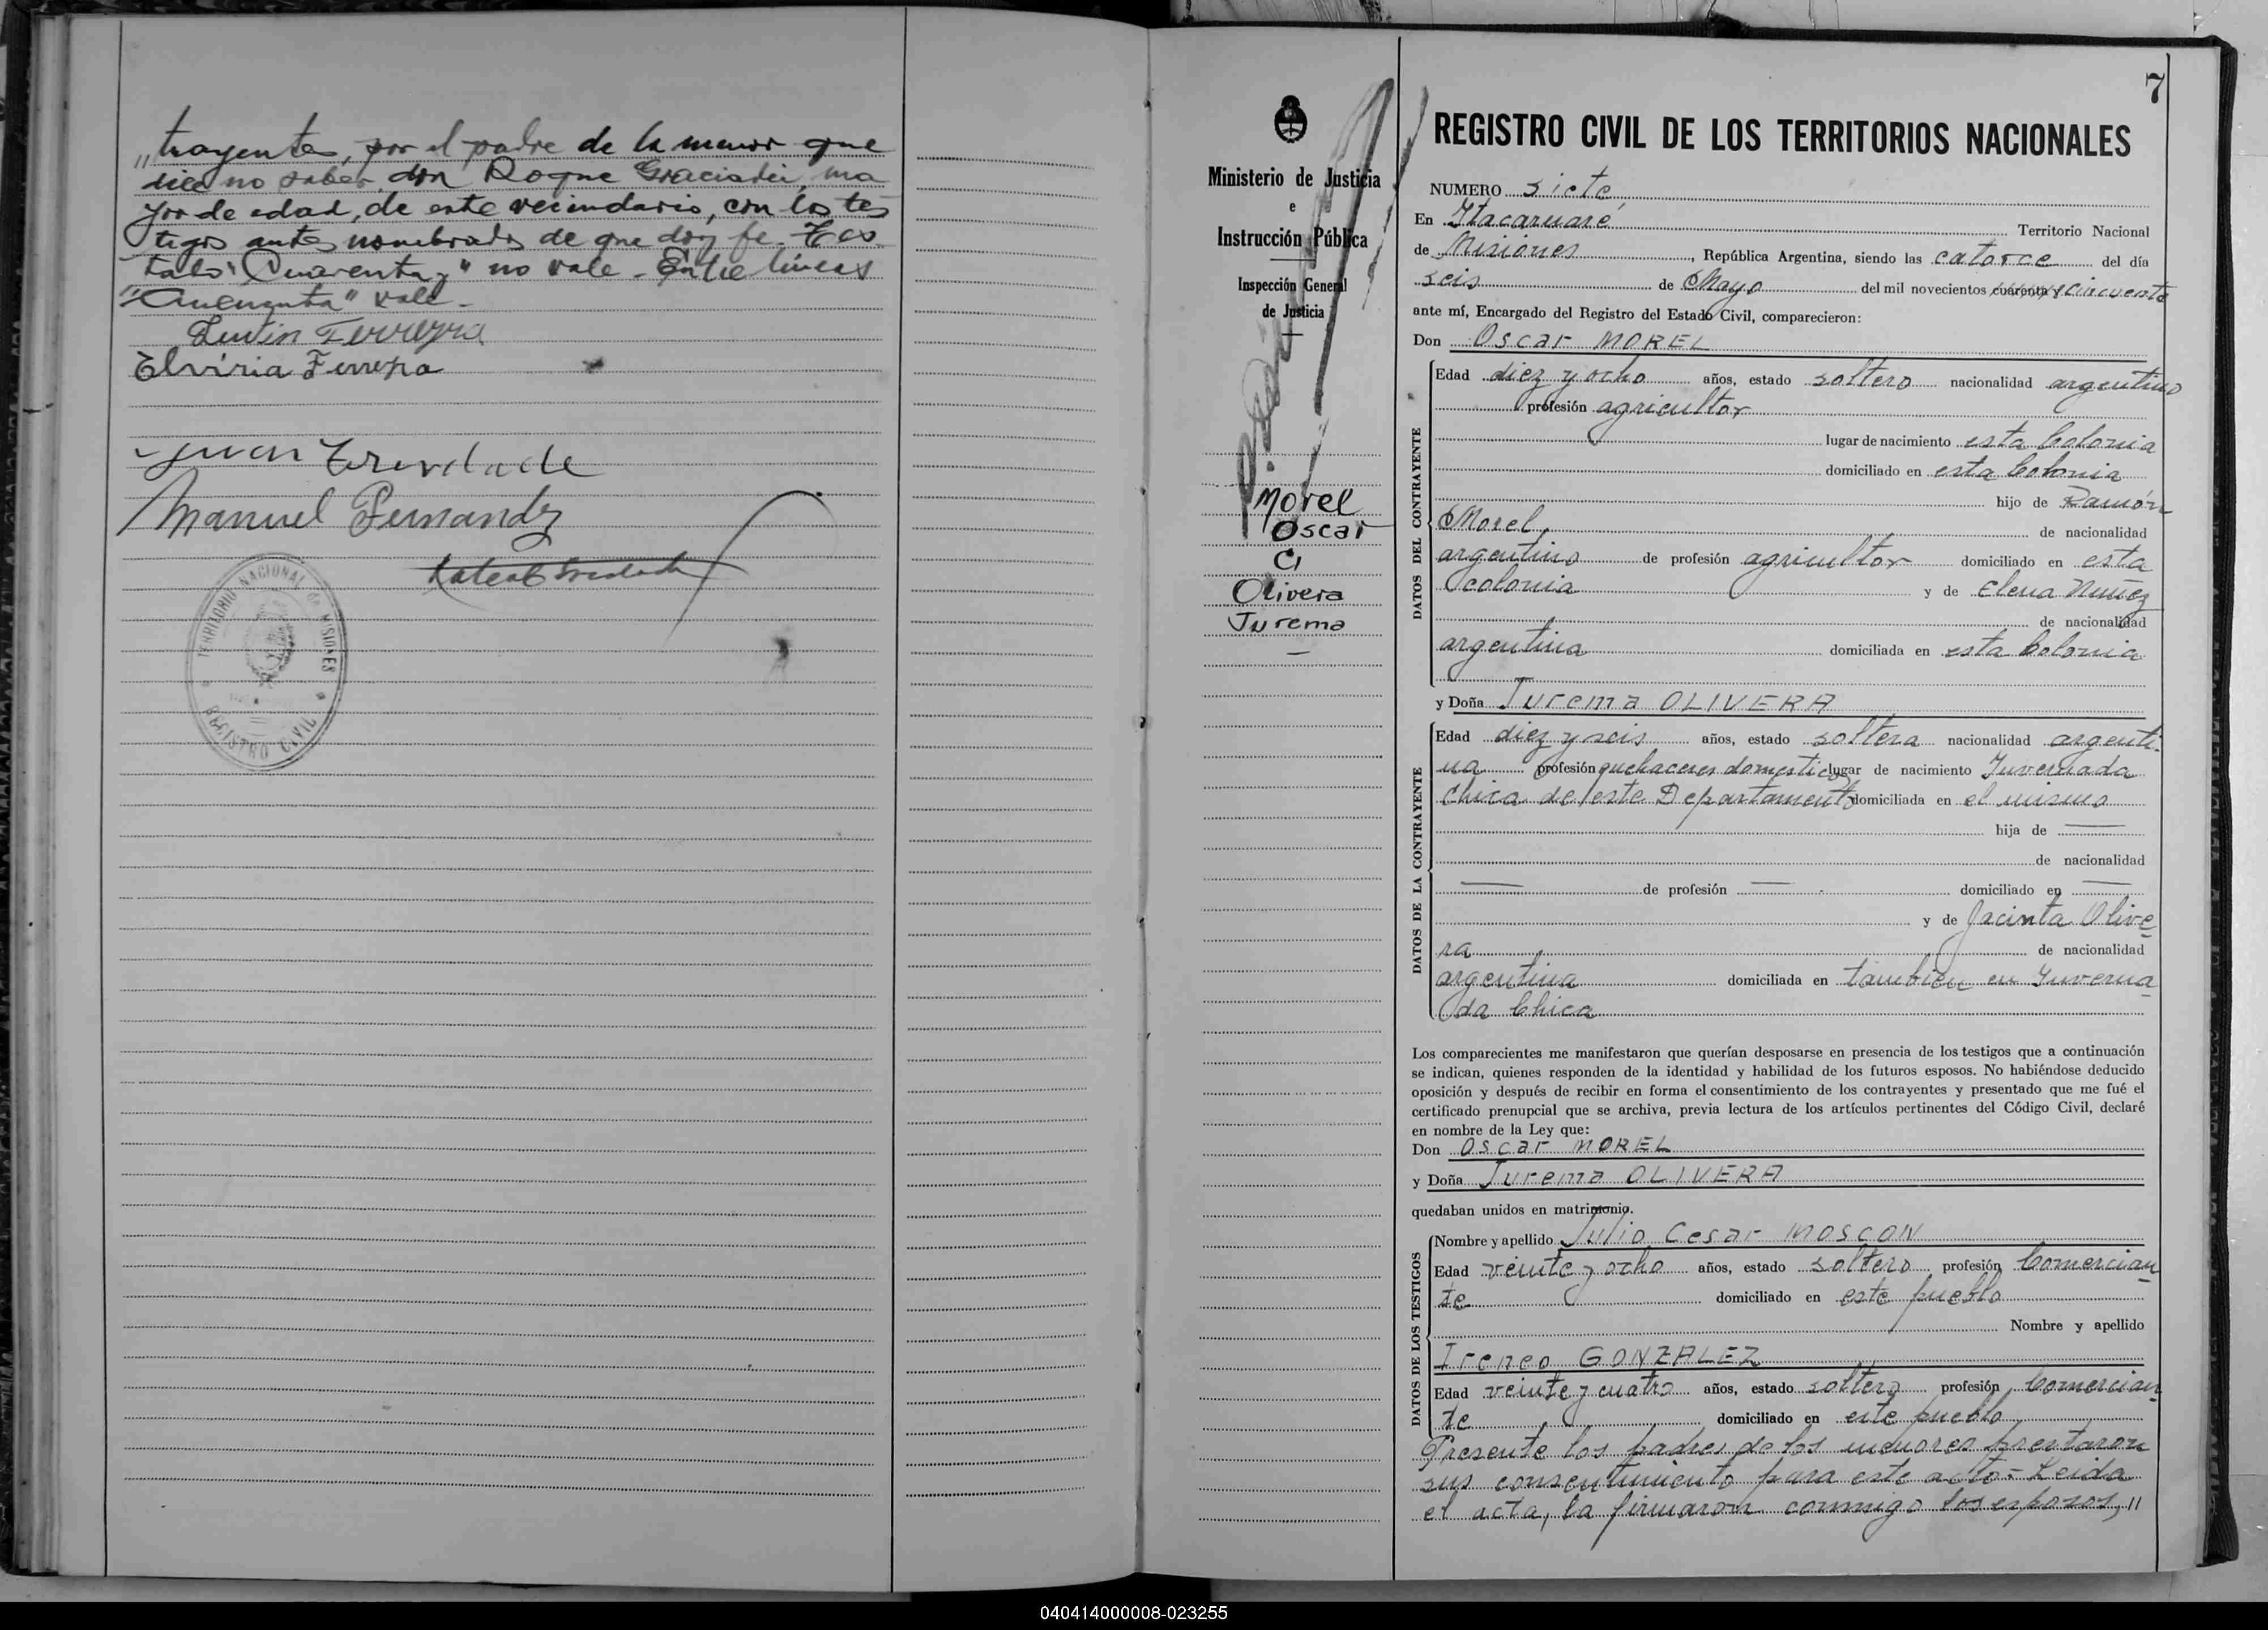 „trayentes, por el padre de la menor que
dice no saber, don Roque Graciadei, ma
yor de edad, de este vecindario, con los tes
tigos antes nombrados de que doy fe. Tes
tado "Cuarenta y" no vale - Entre líneas
"Cincuenta" vale -
Ferreyra
Elviria Ferreyra
Juan Trindade
Manuel Fernandez
TERRITORIO NACIONAL DE MISIONES
REGISTRO CIVIL
Ministerio de Justicia
e
Instrucción Pública
Inspección General
de Justicia
Morel
Oscar
C/
Olivera
Jurema
—
7
REGISTRO CIVIL DE LOS TERRITORIOS NACIONALES
NUMERO siete
En Itacaruaré Territorio Nacional
de Misiones, República Argentina, siendo las catorce del día
seis de Mayo del mil novecientos cuarenta y cincuenta
ante mí, Encargado del Registro del Estado Civil, comparecieron:
Don Oscar MOREL
DATOS DEL CONTRAYENTE
Edad diez y ocho años, estado soltero nacionalidad argentino
profesión agricultor
lugar de nacimiento esta Colonia
domiciliado en esta Colonia
hijo de Ramón
Morel de nacionalidad
argentino de profesión agricultor domiciliado en esta
colonia y de Elena Nuñez
de nacionalidad
argentina domiciliada en esta Colonia
y Doña Jurema OLIVERA
DATOS DE LA CONTRAYENTE
Edad diez y seis años, estado soltera nacionalidad argenti-
na profesión quehaceres domesticos lugar de nacimiento Invernada
Chica de este Departamento domiciliada en el mismo
hija de —
de nacionalidad
— de profesión — domiciliado en —
y de Jacinta Olive
ra de nacionalidad
argentina domiciliada en tambien en Inverna
da Chica
Los comparecientes me manifestaron que querían desposarse en presencia de los testigos que a continuación
se indican, quienes responden de la identidad y habilidad de los futuros esposos. No habiéndose deducido
oposición y después de recibir en forma el consentimiento de los contrayentes y presentado que me fué el
certificado prenupcial que se archiva, previa lectura de los artículos pertinentes del Código Civil, declaré
en nombre de la Ley que:
Don Oscar MOREL
y Doña Jurema OLIVERA
quedaban unidos en matrimonio.
DATOS DE LOS TESTIGOS
Nombre y apellido Julio Cesar MOSCON
Edad veinte y ocho años, estado soltero profesión Comercian
te domiciliado en este pueblo
Nombre y apellido
Ireneo GONZALEZ
Edad veinte y cuatro años, estado soltero profesión Comercian
te domiciliado en este pueblo
Presente los padres de los menores prestaron
sus consentimiento para este acto = Leida
el acta, la firmaron conmigo los esposos, "
040414000008-023255